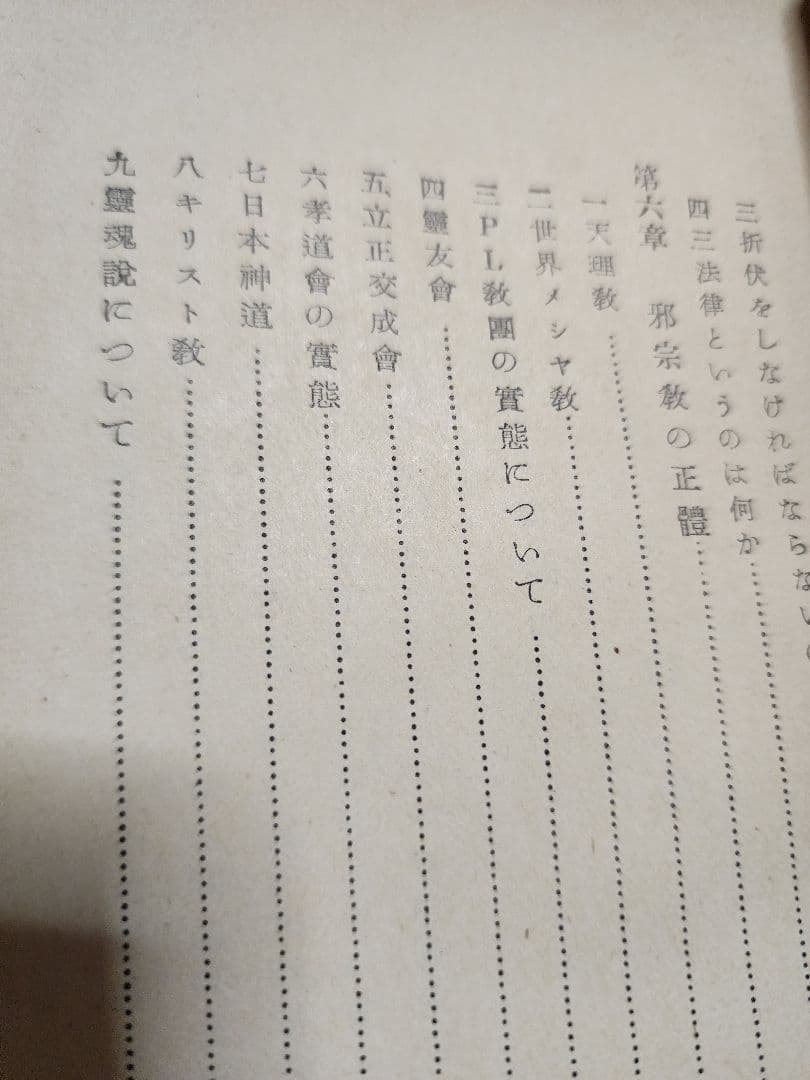 三折伏をしなければならない
四三法律というのは何か
第六章 邪宗教の正體
一天理教
二世界メシヤ教
三PL教團の實態について
四靈友會
五、立正交成會
六孝道會の實態
七日本神道
八キリスト教
九靈魂說について